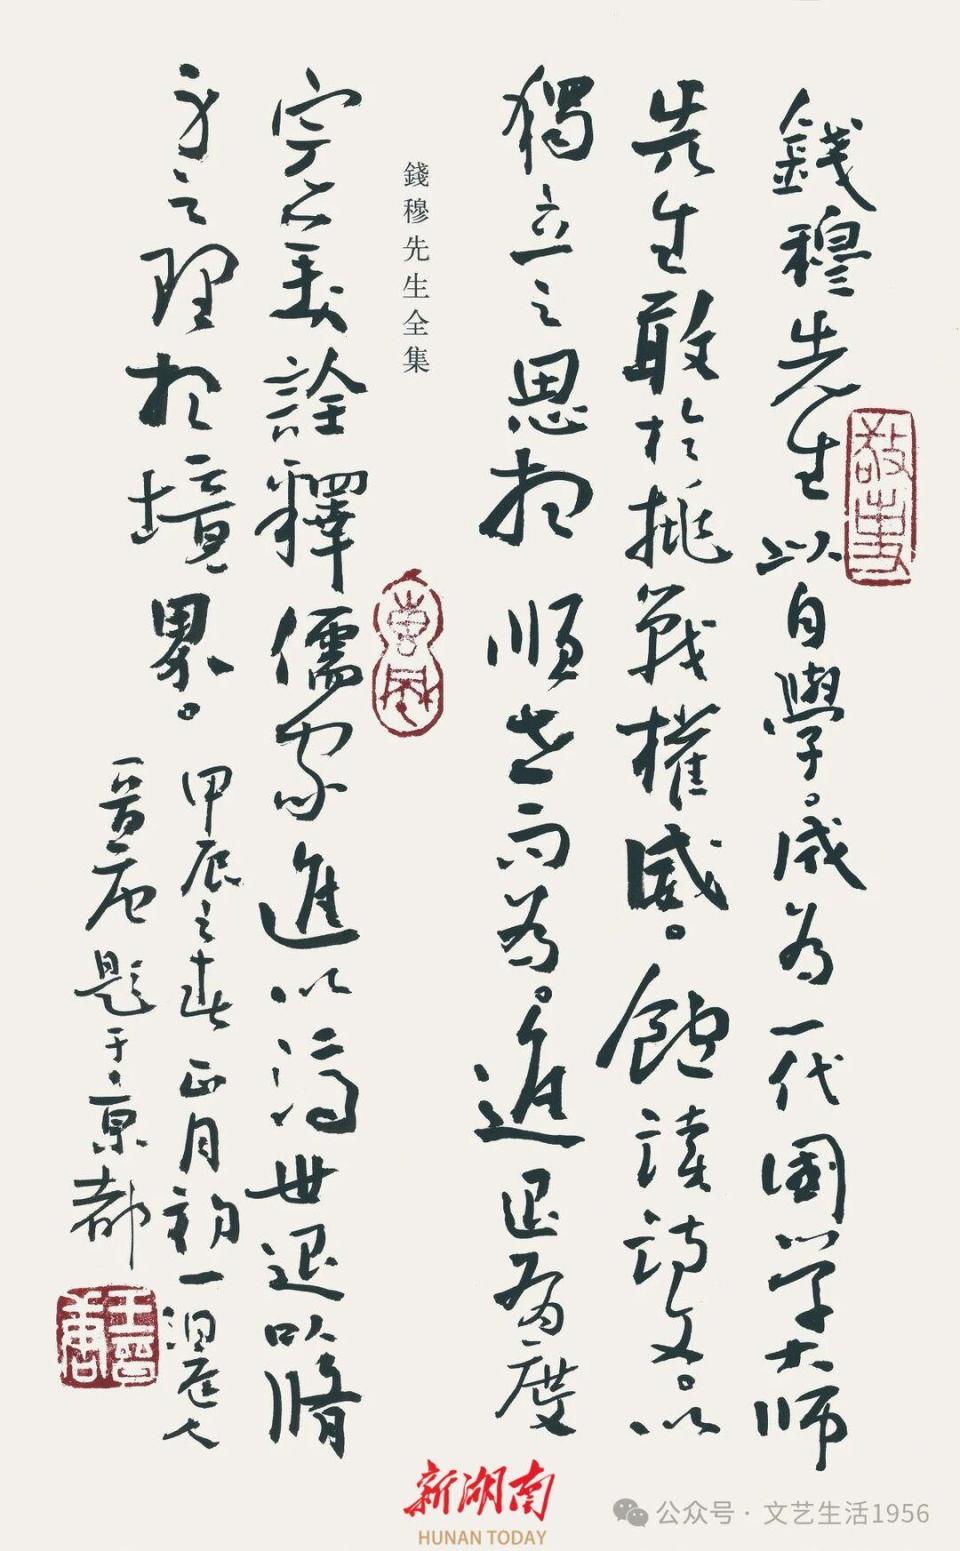 錢穆先生以自學。成為一代國學大師
先生敢於挑戰權威。飽讀詩文。以
獨立之思想順世而為。進退有度
錢穆先生全集
完美詮釋儒家進以濟世退以脩
身之理想境界。
甲辰之春正月初一洞庭人
晉題于京都
新湖南
HUNAN TODAY
公众号·文艺生活1956